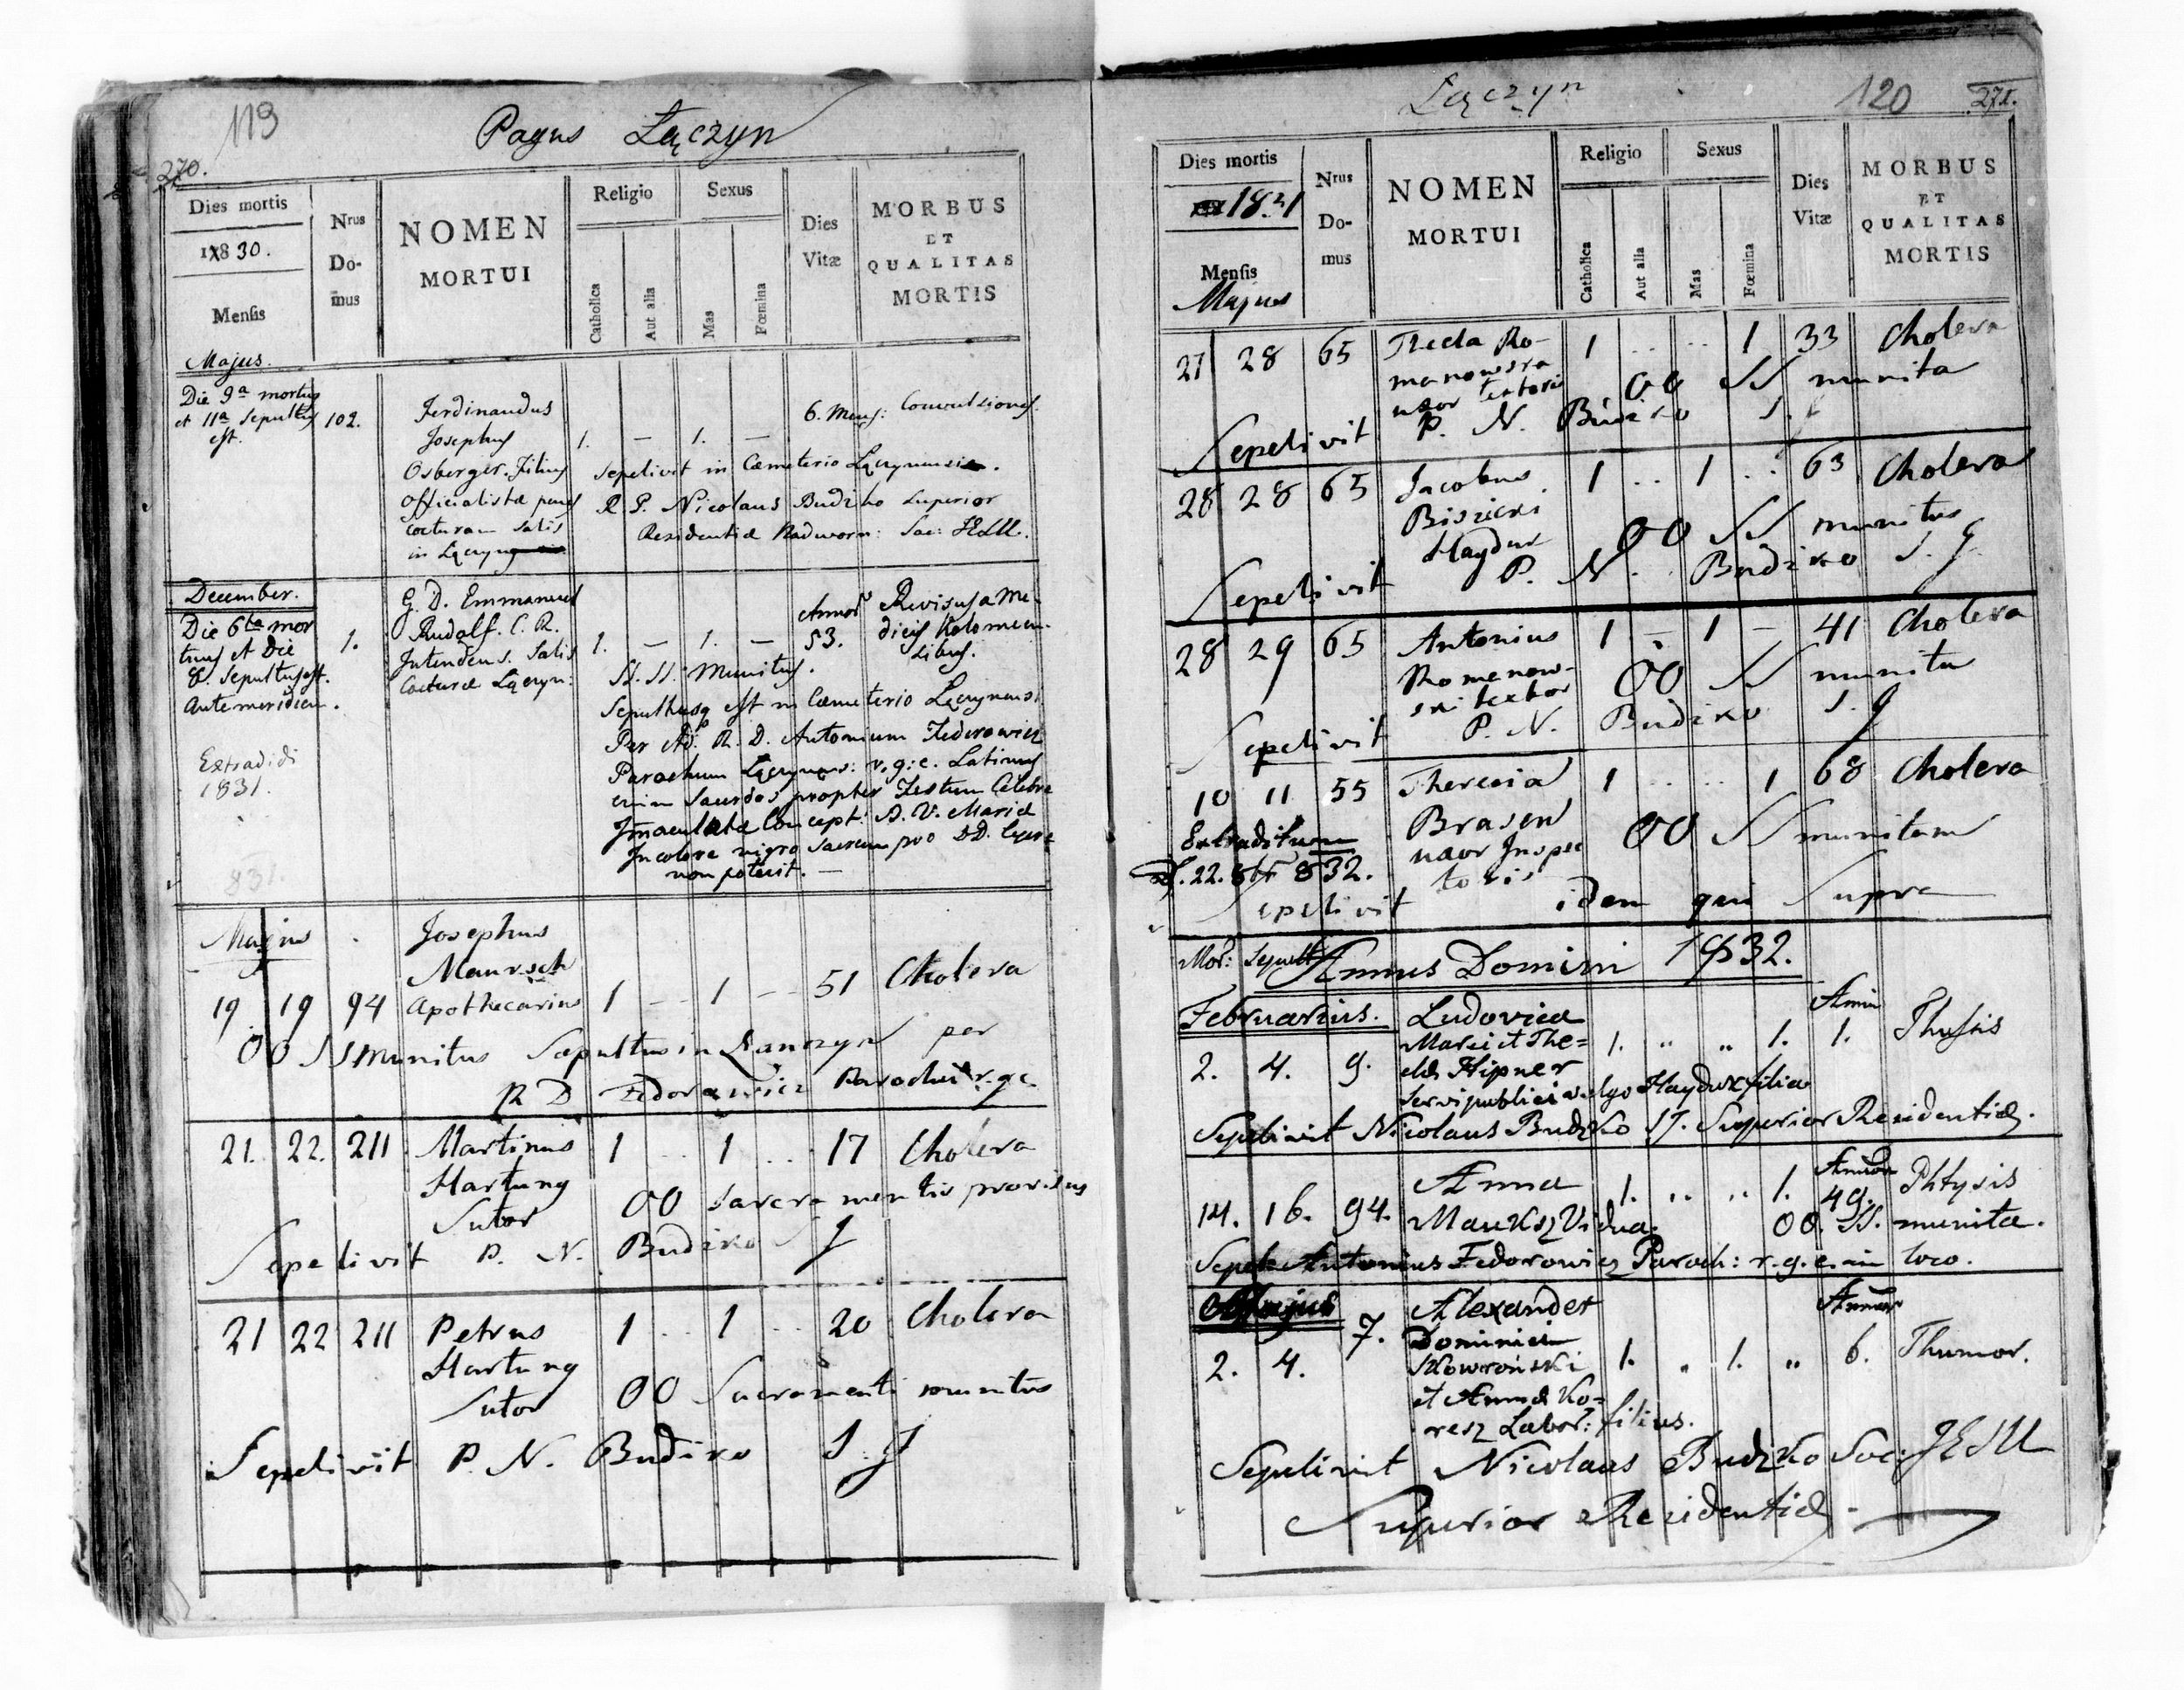 119
Pagus Łączyn
270.
Dies mortis
1830.
Mensis
Nrus
Do-
mus
NOMEN
MORTUI
Religio
Catholica
Aut alia
Sexus
Mas
Fœmina
Dies
Vitæ
MORBUS
ET
QUALITAS
MORTIS
Majus.
Die 9a mortus
et 11a sepultus
est.
102.
Ferdinandus
Josephus
Osberger. Filius
Officialistæ penes
cocturam Salis
in
1. — 1. —
6. Mens: Convulsiones.
Sepelivit in Cæmeterio Łączynensi.
R. P. Nicolaus Budzko Superior
Residentiæ Nadworn: Soc: JESU.
December.
Die 6ta mor
tuus et Die
8. Sepultus est.
Ante meridiem.
1.
G. D. Emmanuel
Rudolf. C. R.
Intendens. Salis
Cocturæ Łączyn:
1. — 1. —
Annor
53.
Revisus a Me-
dicis Kolomien-
sibus.
SS. SS. Munitus.
Sepultusq est in Cæmeterio Łączynensi
Per Ad. R. D. Antonium Fedorowicz
Parochum Łączynens: r. g. c. Latinus
enim Sacerdos propter Festum Celebre
Jmaculatæ Concept: B. V. Mariæ
In colore nigro Sacrum pro DD.
non poterit. —
Extradidi
1831.
831.
Majus
19 19 94
Josephus
Maursch
Apothecarius
1 — 1 — 51 Cholera
OO SS munitus Sepultus in Lanczyn per
R D Fedorowicz Parochus r. g. c.
21. 22. 211
Martinus
Hartung
Sutor
1 .. 1 .. 17 Cholera
OO Sacramentis provisus
Sepelivit P. N. Budzko S J
21 22 211
Petrus
Hartung
Sutor
1 .. 1 .. 20 Cholera
OO Sacramenti munitus
Sepelivit P. N. Budzko S. J
Łączyn
120
271.
Dies mortis
1831
Mensis
Majus
Nrus
Do-
mus
NOMEN
MORTUI
Religio
Catholica
Aut alia
Sexus
Mas
Fœmina
Dies
Vitæ
MORBUS
ET
QUALITAS
MORTIS
27 28 65
Thecla Ro-
manowska
uxor textoris
1 .. .. 1 33 Cholera
OO SS munita
Sepelivit P. N. Budzko S. J
28 28 65
Jacobus
Bisicki
Hayduk
1 .. 1 . 63 Cholera
OO SS munitus
Sepelivit P. N. Budzko S. J.
28 29 65
Antonius
Romanow-
ski textor
1 — 1 — 41 Cholera
OO SS munitu
Sepelivit P. N. Budzko S. J
10 11 55
Theresia
Brasen
uxor Inspec
toris
1 .. .. 1 68 Cholera
OO SS munitam
Extraditum
d. 22. 832.
Sepelivit idem qui Supra
Mor: Sepult:
Annus Domini 1832.
Februarius.
2. 4. 9.
Ludovica
Marci et The=
clæ Hipner
Servi publici vulgo Hayduk filia
1. „ „ 1.
Anni
1. Thysis
Sepelivit Nicolaus Budzko SJ. Superior Residentiæ.
14. 16. 94.
Anna
Mauksz Vidua.
1. „ „ 1.
Annor
49. Phtysis
OO. SS. munita.
Sepel: Antonius Fedorowicz Paroch: r. g. c. in loco.
Majus
2. 4. 7.
Alexander
Dominici
Skowroński
et Annæ Ko=
resz Labor: filius.
1. „ 1. „
Annor
6. Thumor.
Sepelivit Nicolaus Budzko Soc: JESU
Superior Residentiæ —